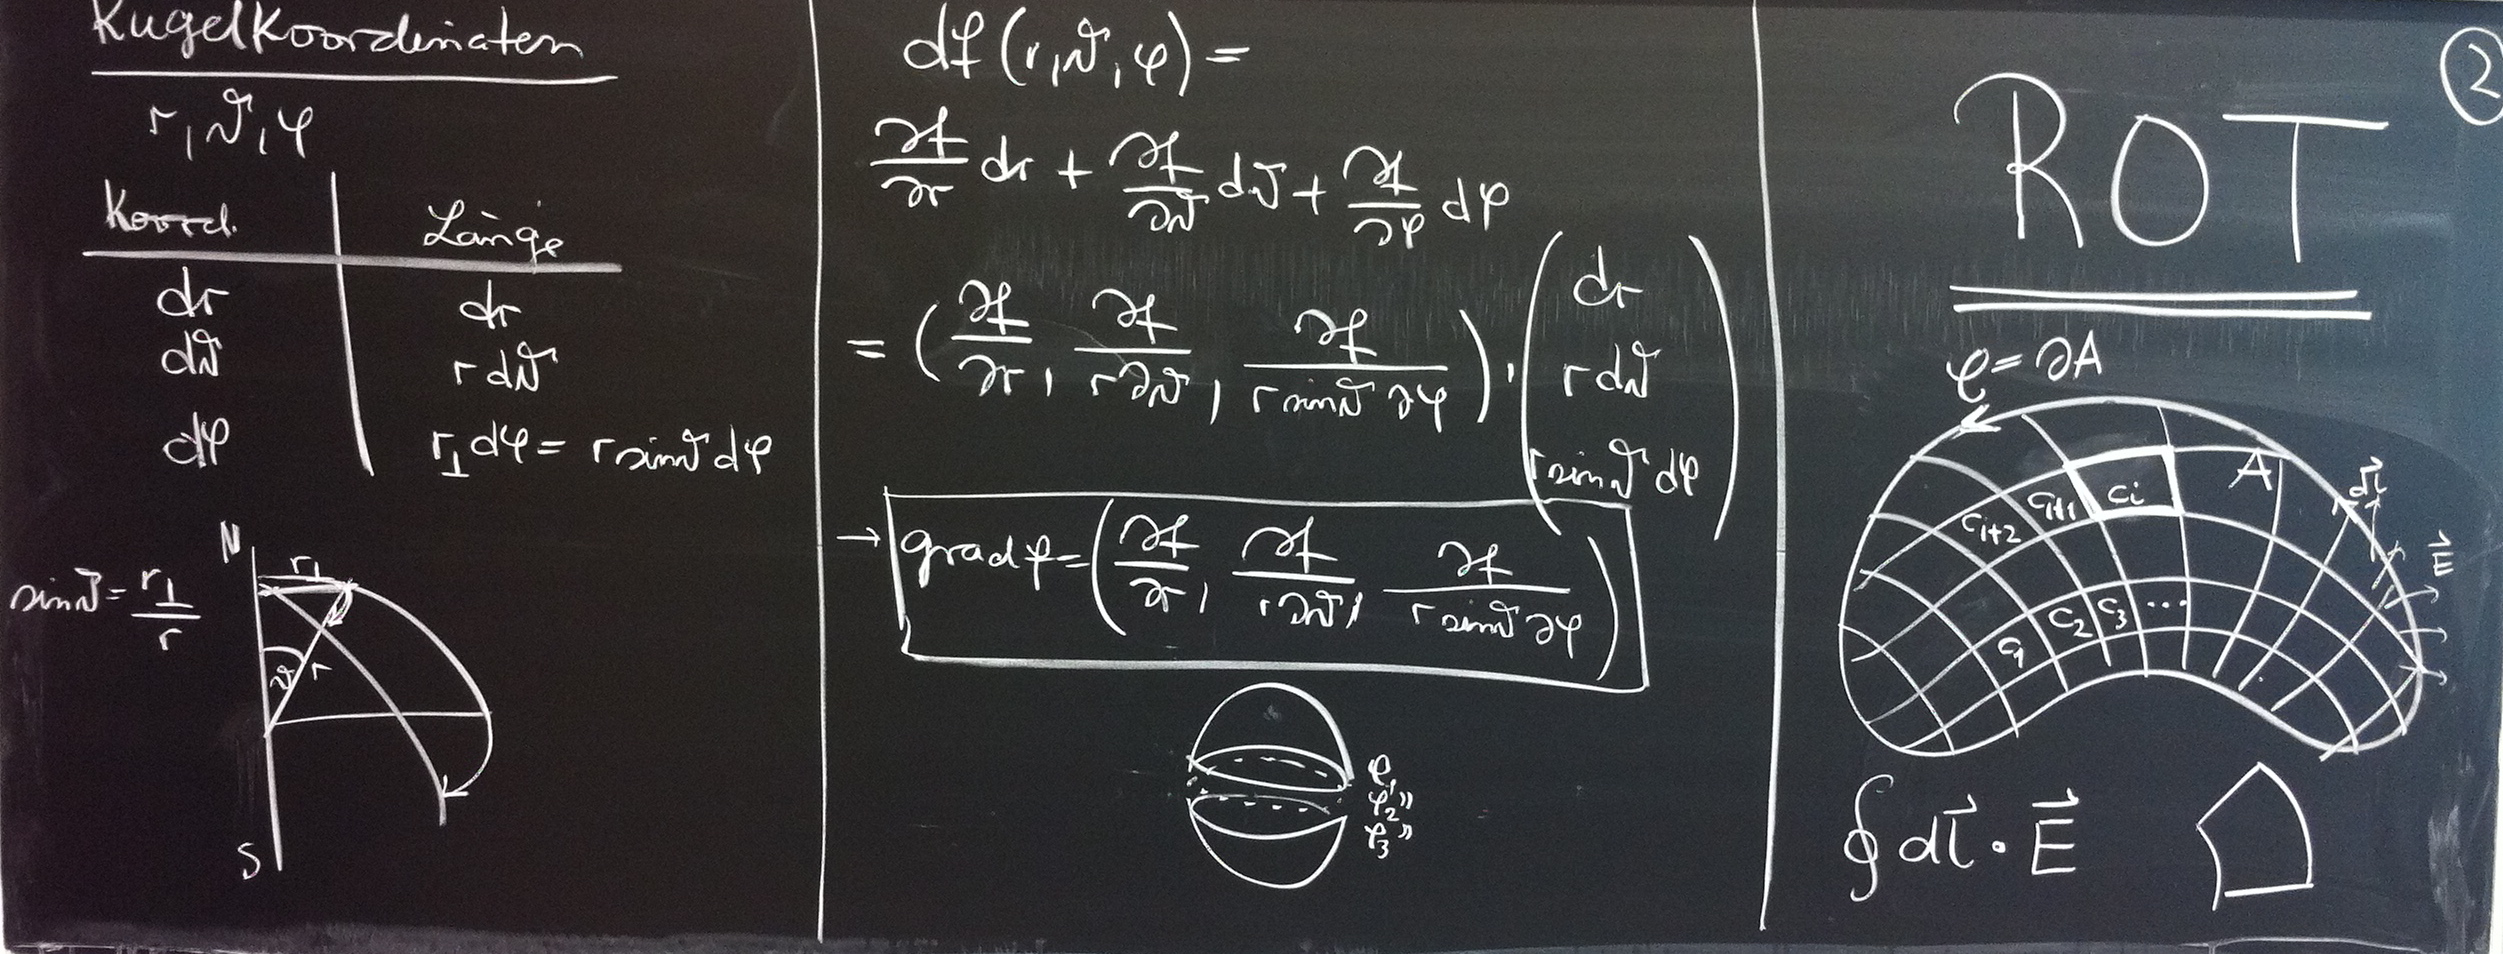 Kugelkoordinaten
r, ϑ, φ
Koord. Länge
dr dr
dϑ r dϑ
dφ r⊥ dφ = r sinϑ dφ
N
r⊥
sinϑ = r⊥/r
ϑ r
S
df (r, ϑ, φ) =
∂f/∂r dr + ∂f/∂ϑ dϑ + ∂f/∂φ dφ
= (∂f/∂r, ∂f/r∂ϑ, ∂f/r sinϑ ∂φ) · (dr r dϑ r sinϑ dφ)
→ grad f = (∂f/∂r, ∂f/r∂ϑ, ∂f/r sinϑ ∂φ)
φ₁
φ₂"
φ₃"
②
ROT
𝒞 = ∂A
A
dl
Ci+2 Ci+1 Ci
E
C1 C2 C3 ...
∮ dl · E